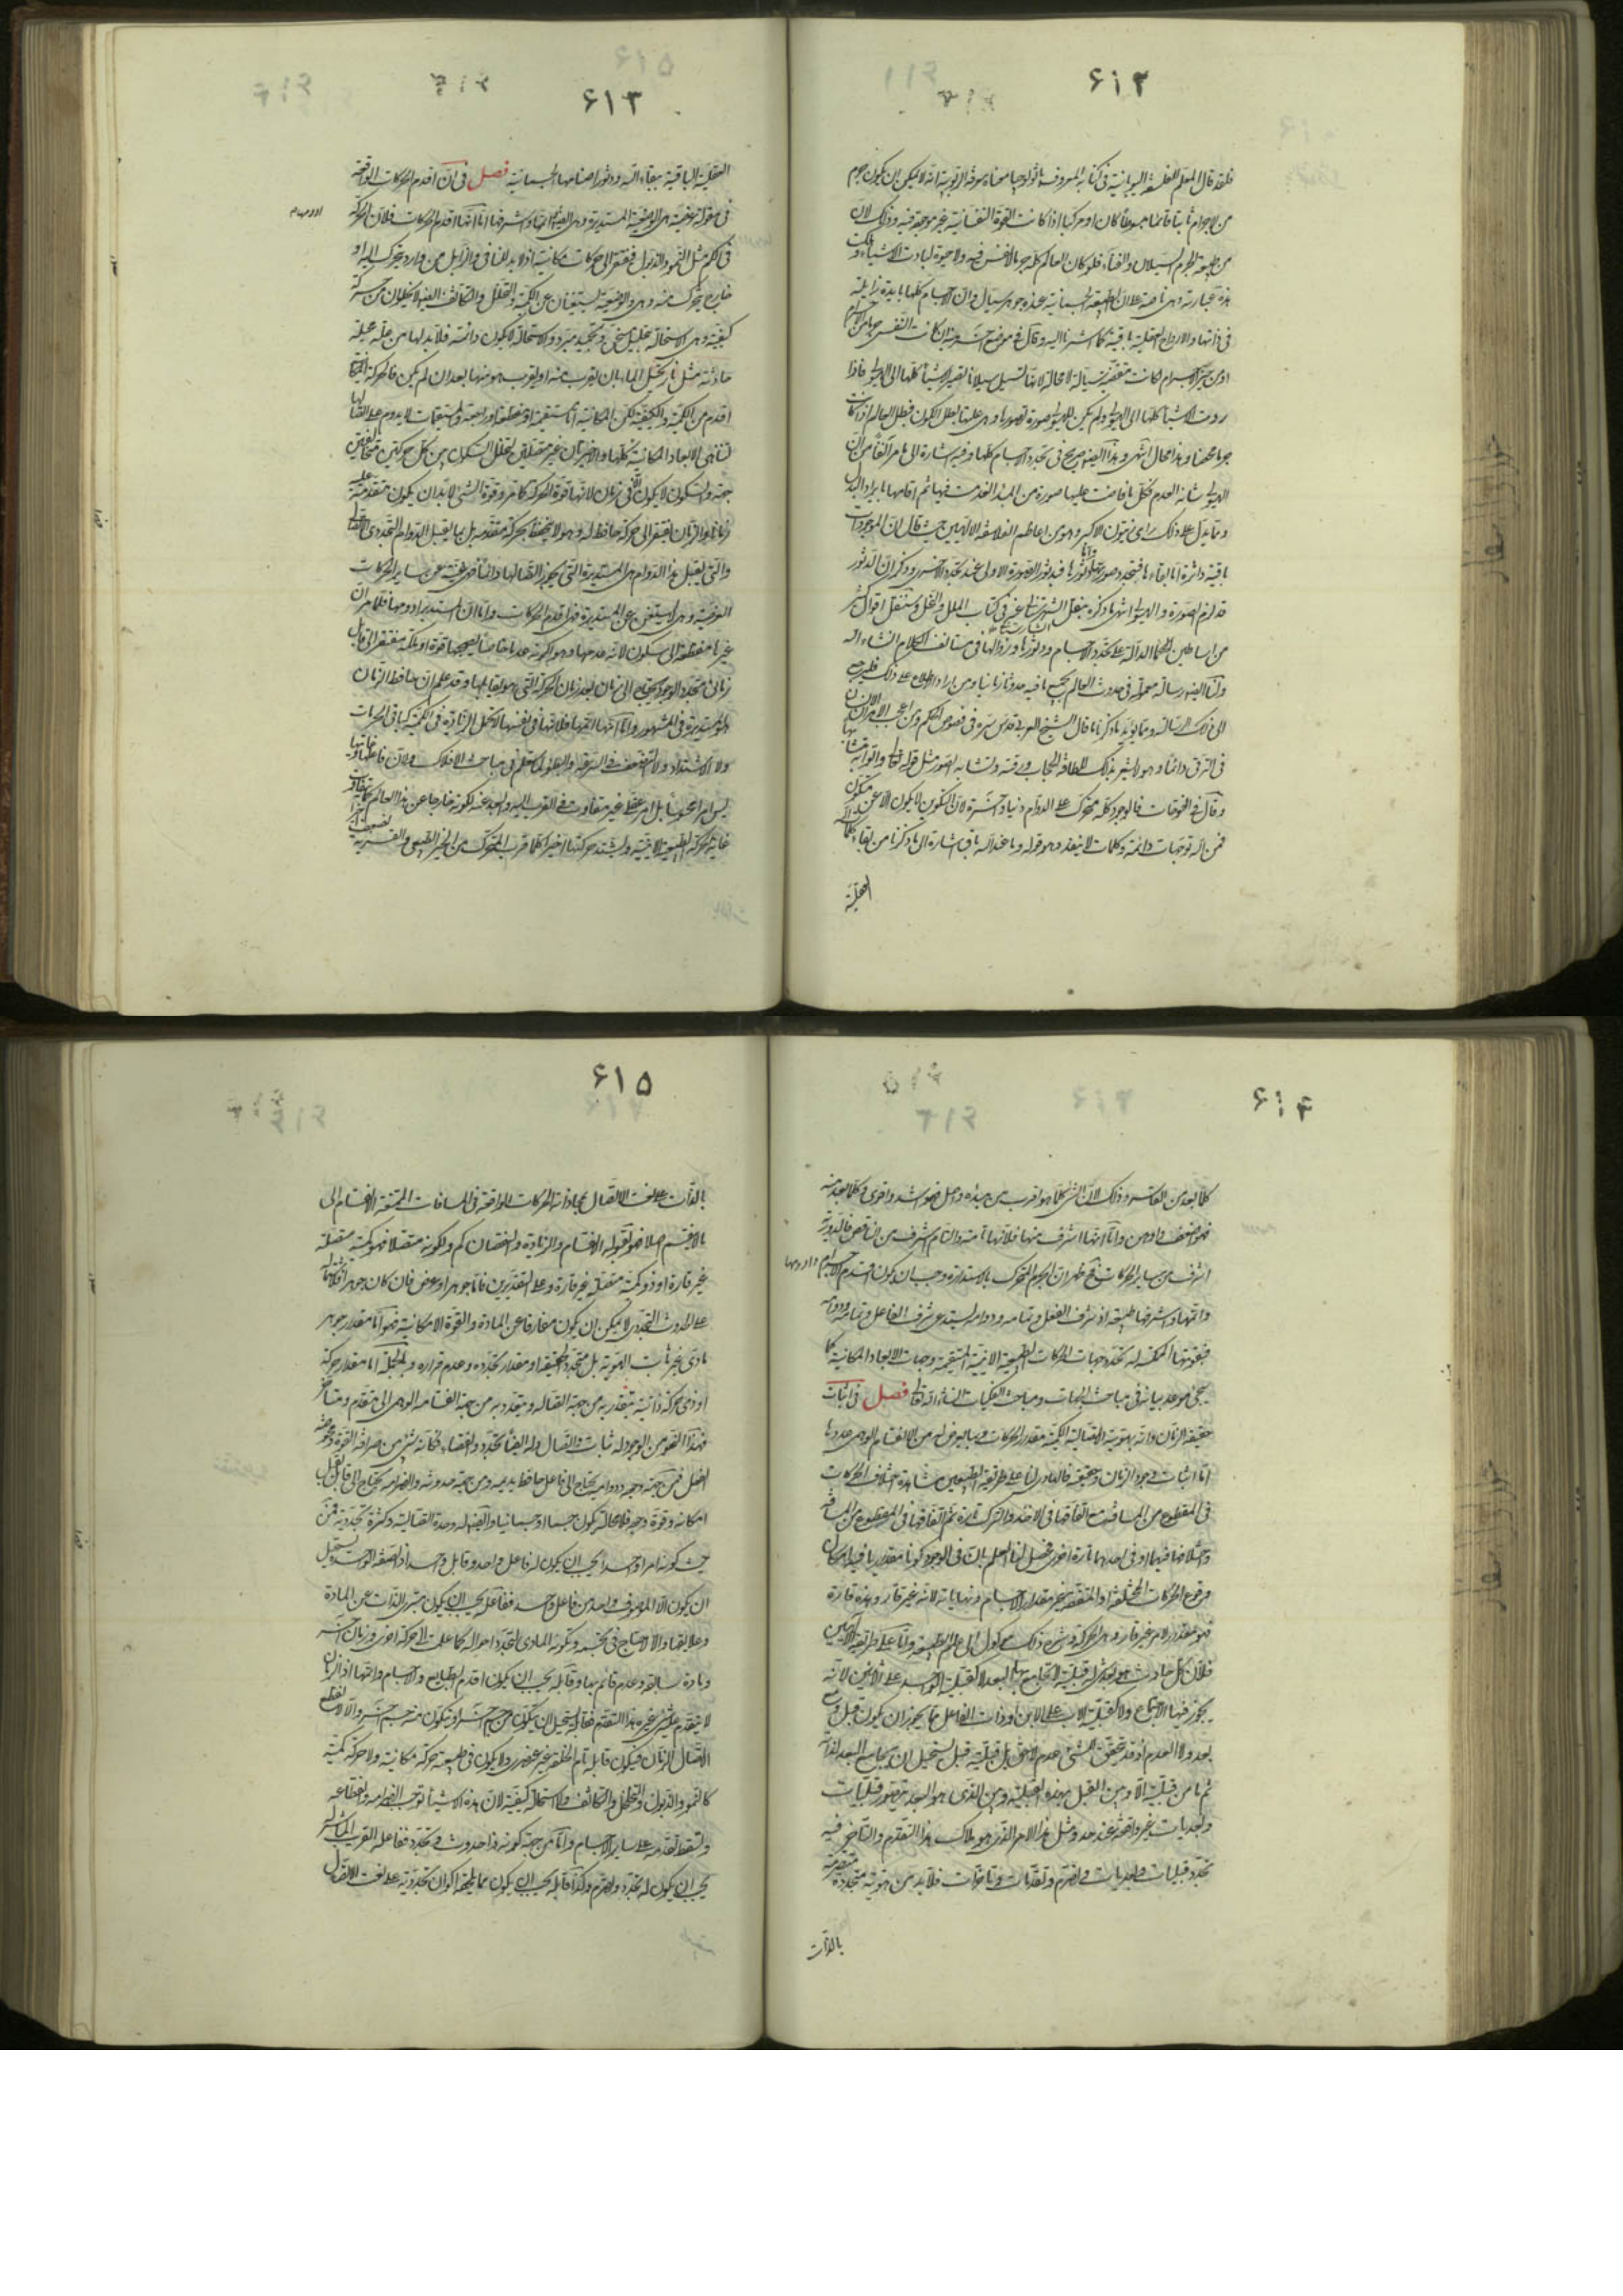 ۶۱۲
فلقد قال المعلم للفلسفة اليونانية فى كتابه المعروف باثولوجيا معناه معرفة الربوبية انه لا يمكن ان يكون جرم
من الاجرام ثابتا قائما مبسوطا كان او مركبا اذا كانت القوة النفسانية غير موجودة فيه وذلك لان
من طبيعة الجرم السيلان والفناء فلو كان العالم كله جرما لا نفس فيه ولا حيوة لبادت الاشياء وهلكت
هذه عبارته وهى ناصة على ان الطبيعة الجسمانية عنده جوهر سيال وان الاجسام كلها بايدة زايلة
فى ذاتها والارواح العقلية باقية كما اشرنا اليه وقال فى موضع اخر منه ان كانت النفس جرما من الاجرام
او من حيز الاجرام لكانت منقضية سيالة لا محالة لانها تسيل سيلانا تصير الاشياء كلها الى الهيولى فاذا
ردت الاشياء كلها الى الهيولى ولم يكن للهيولى صورة تصورها وهى علتها بطل الكون فبطل العالم اذا كانت
جرما محضا وهذا محال انتهى وهذا ايضا صريح فى تجدد الاجسام كلها وفيه اشارة الى ما مر آنفا من ان
الهيولى شانه العدم فكل ما فاضت عليها صورة من المبدأ انعدمت فيها ثم اقامها بايراد البدل
ومما يدل على ذلك راى زينون الاكبر وهو من اعاظم الفلاسفة الالهيين حيث قال ان الموجودات
باقية داثرة اما بقاءها فبتجدد صورها واما دثورها فبدثور الصورة الاولى عند تجدد الاخرى وذكر ان الدثور
قد لزم الصورة والهيولى انتهى ما ذكره بنقل الشهرستانى فى كتاب الملل والنحل وسننقل اقوال كثير
من اساطين الحكماء الدالة على تجدد الاجسام ودثورها وزوالها فى مستأنف الكلام انشاء الله
ولنا ايضا رسالة معمولة فى حدوث العالم بجميع ما فيه حدوثا زمانيا ومن اراد الاطلاع على ذلك فليرجع
الى تلك الرسالة ومما يؤيد ما ذكرنا ما قال الشيخ العربى قدس سره فى فصوص الحكم ومن اعجب الامر ان الانسان
فى الترقى دائما وهو لا يشعر بذلك للطافة الحجاب ورقته وتشابه الصور مثل قوله تعالى واتوا به متشابها
وقال فى الفتوحات فالوجود كله متحرك على الدوام دنيا وآخرة لان التكوين لا يكون الا عن مكون
فمن الله توجهات دائمة وكلمات لا تنفد وهو قوله وما عند الله باق اشارة الى ما ذكرنا من بقاء كلمات الله
العقلية
۶۱۳
العقلية الباقية ببقاء الله ودثور اصنامها الجسمانية فصل فى ان اقدم الحركات الواقعة
فى مقولة عرضية هى الوضعية المستديرة وهى ايضا اتمها واشرفها اما انها اقدم الحركات فلان الحركة
فى الكم مثل النمو والذبول فيفتقر الى حركات مكانية اذ لا بد للنامى والذابل من وارد يتحرك اليه او
خارج يتحرك منه وهى والوضعية تستغنيان عن الكمية والتخلخل والتكاثف ايضا لا يخلوان من حركة
كيفية وهى الاستحالة بتحليل مسخن وتجميد مبرد والاستحالة لا يكون دائمة فلا بد لها من علة محيلة
حادثة مثل نار يحيل الماء بان يقرب منه او يقرب هو منها بعد ان لم يكن فالحركة المكانية
اقدم من الكمية والكيفية لكن المكانية اما مستقيمة او منعطفة او راجعة والمستقيمات لا يدوم على اتصالها
لتناهى الابعاد المكانية كلها والاخيرتان غير متصلتين لتخلل السكون بين كل حركتين متخالفتين
جهة والسكون لا يكون الا فى زمان لانها قوة الحركة كما مر وقوة الشىء لا بد ان يكون متقدمة عليه
زمانا والزمان يفتقر الى حركة حافظة له وهو لا يتحفظ بحركة متقدمة بل بما يقبل الدوام التجددى الاتصالى
والتى يقبل هذا الدوام هى المستديرة التى يجوز اتصالها دائما فهى غنية عن ساير الحركات
العرضية وهى لا يستغنى عن المستديرة فهى اقدم الحركات واما ان المستديرة ادومها فلما مر ان
غيرها منقطعة الى سكون لانه عدمها وهو لكونه عدما خاصا يصحبها قوة او ملكة مفتقر الى قابل
زمانى متجدد الوجود يحتاج الى زمان بعد زمان الحركة التى هو يقابلها وقد علم ان حافظ الزمان
هو المستديرة فى المشهور واما انها اتمها فلانها فى نفسها لا يحتمل الزيادة فى الكمية كباقى الحركات
ولا الاشتداد ولا التضعف فى السرعة والبطؤ كما يعلم فى مباحث الافلاك ولان فاعلها وغايتها
ليس امرا محسوسا بل امر عقلى غير متفاوت فى القرب اليه والبعد عنه لكونه خارجا عن هذا العالم كما يتفاوت
غاية الحركة الطبيعية الاينية ويشتد حركتها اخيرا كلما قرب المتحرك من الحيز الطبيعى والقسرية يضعف اخيرا
۶۱۴
كلما بعد من القاسر وذلك لان الشىء كلما هو اقرب من مبدئه واصله فهو اشد واقوى وكلما بعد منه
فهو اضعف واوهن واما انها اشرف منها فلانها تامة والتام اشرف من الناقص فالدورية
اشرف من ساير الحركات فقد ظهر ان الجرم المتحرك بالاستدارة وجب ان يكون اقدم الاجرام وادومها
واتمها واشرفها طبيعة اذ شرف الفعل وتمامه ودوامه يستدعى شرف الفاعل وتمامه ودوامه
فبقوتها الممكنة له تتحدد جهات الحركات الطبيعية الاينية المستقيمة وجهات الابعاد المكانية كما
سيجئ موعد بيانه فى مباحث الجهات ومباحث الفلكيات انشاء الله تعالى فصل فى اثبات
حقيقة الزمان وانه بهويته الاتصالية الكمية مقدار الحركات وبما يعرض له من الانقسام الوهمى عددها
اما اثبات وجود الزمان وحقيقته فالهادى لنا على طريقة الطبيعيين مشاهدة اختلاف الحركات
فى المقطوع من المسافة مع اتفاقها فى الاخذ والترك تارة ثم اتفاقها فى المقطوع من المسافة
واختلافها فيهما او فى احدهما تارة اخرى فحصل لنا العلم بان فى الوجود كونا مقداريا فيه امكان
وقوع الحركات المختلفة او المتفقة غير مقدار الاجسام ونهاياتها لانه غير قار وهذه قارة
فهو مقدار لامر غير قار وهى الحركة وشرح ذلك موكول الى علم الطبيعة واما على طريقة الالهيين
فلان كل حادث هو بعد شىء له قبلية لا يجامع به البعد لا كقبلية الواحد على الاثنين لانه
يجوز فيها الاجتماع ولا كقبلية الاب على الابن او ذات الفاعل مما يجوز ان يكون قبل ومع
وبعد ولا العدم اذ قد يتحقق للشىء عدم لاحق بل قبلية قبل يستحيل ان يجامع البعد لذاته
ثم ما من قبلية الا وبين القبل بهذه القبلية وبين الذى هو البعد يتصور قبليات
وبعديات غير واقفة عند حد ومثل هذا الامر الذى هو ملاك هذا التقدم والتاخر فيه
تجدد قبليات وبعديات وتصرم وتقدمات وتاخرات فلا بد من هوية متجددة متصرمة
بالذات
۶۱۵
بالذات على نعت الاتصال بمحاذاة الحركات الواقعة فى المسافات الممتنعة الانقسام الى
ما لا ينقسم اصلا فهو لقبوله الانقسام والزيادة والنقصان كم ولكونه متصلا فهو كمية متصلة
غير قارة او ذو كمية متصلة غير قارة وعلى التقديرين فاما جوهر او عرض فان كان جوهرا فلاشتماله
على الحدوث التجددى لا يمكن ان يكون مفارقا عن المادة والقوة الامكانية فهو اما مقدار جوهر
مادى غير ثابت الهوية بل متجدد الحقيقة او مقدار تجدده وعدم قراره وبالجملة اما مقدار حركة
او ذى حركة ذاتية يتقدر به من جهة اتصاله ويتعدد به من جهة انقسامه الوهمى الى متقدم ومتاخر
فهذا النحو من الوجود له ثبات واتصال وله ايضا تجدد وانقضاء فكأنه شىء بين صرافة القوة ومحوضة
الفعل فمن جهة وجوده ودوامه يحتاج الى فاعل حافظ يديمه ومن جهة حدوثه وانصرامه يحتاج الى قابل يقبل
امكانه وقوة وجوده فلا محالة يكون جسما او جسمانيا وايضا له وحدة اتصالية وكثرة تجددية فمن
حيث كونه امرا واحدا يجب ان يكون له فاعل واحد وقابل واحد اذ الصفة الواحدة يستحيل
ان يكون الا لموصوف واحد من فاعل واحد ففاعله يجب ان يكون متبرى الذات عن المادة
وعلايقها والا لاحتاج فى تجسمه وتكونه المادى لتجدد احواله كما علمت الى حركة اخرى وزمان آخر
ومادة سابقة وعدم قائم بها وقابله يجب ان يكون اقدم الطبايع والاجسام واتمها اذ الزمان
لا يتقدم عليه شىء غيره هذا التقدم فقابله يستحيل ان يتكون من جسم اخر او يتكون منه جسم اخر والا لانقطع
اتصال الزمان فيكون قابله تام الخلقة غير عنصرى ولا يكون فى طبيعته حركة مكانية ولا حركة كمية
كالنمو والذبول والتخلخل والتكاثف ولا استحالة كيفية لان هذه الاشياء توجب انصرامه وانقطاعه
وتسقط تقدمه على ساير الاجسام واما من جهة كونه ذا حدوث وتجدد ففاعله القريب المباشر له
يجب ان يكون له تجدد وتصرم وكذا قابله يجب ان يكون مما يلحقه اكوان تجددية على نعت الاتصال